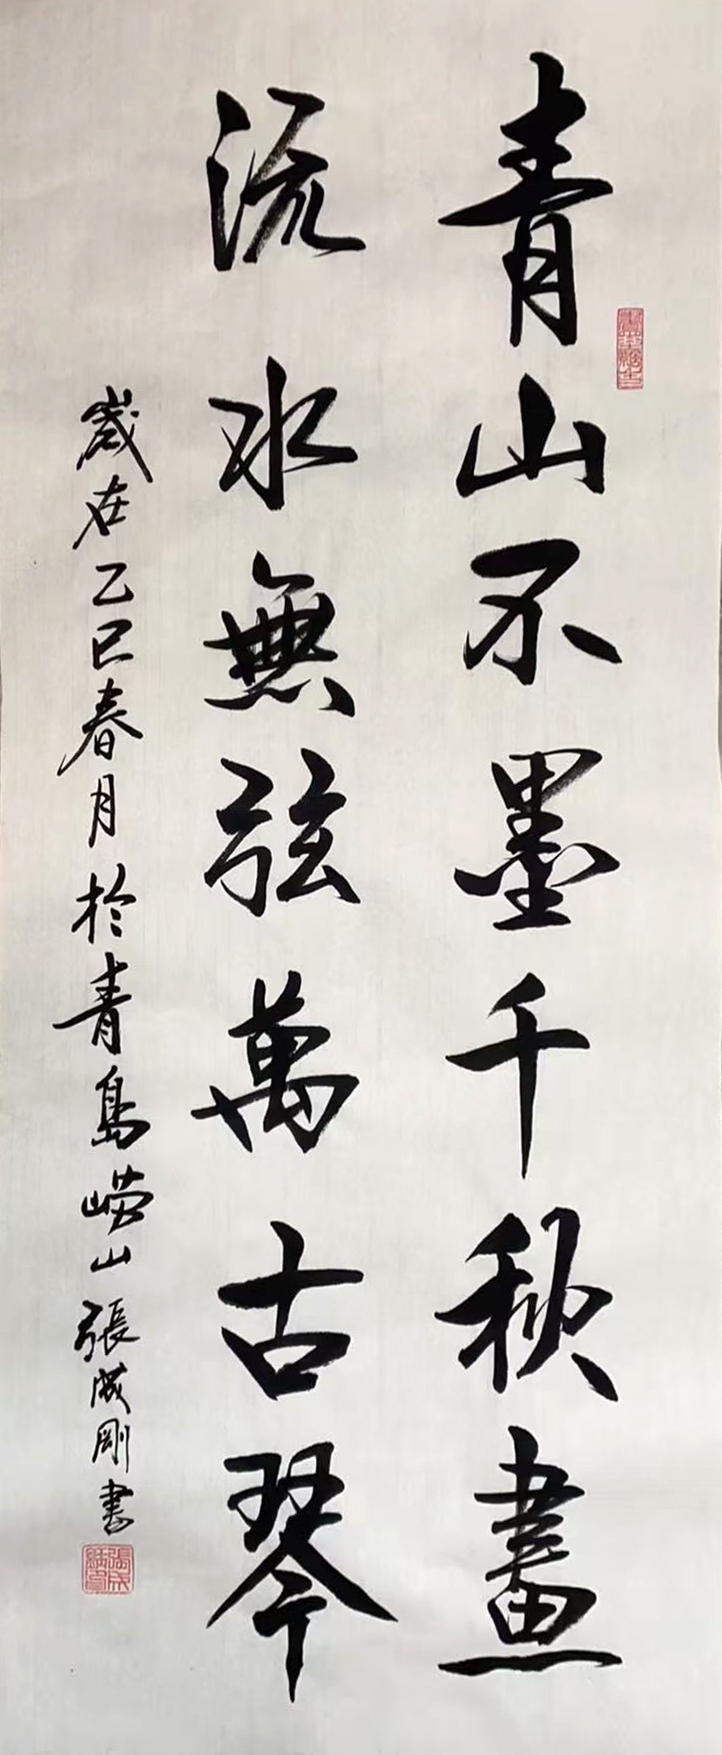 青山不墨千秋畫
流水無弦萬古琴
歲在乙巳春月於青島嶗山張成剛書